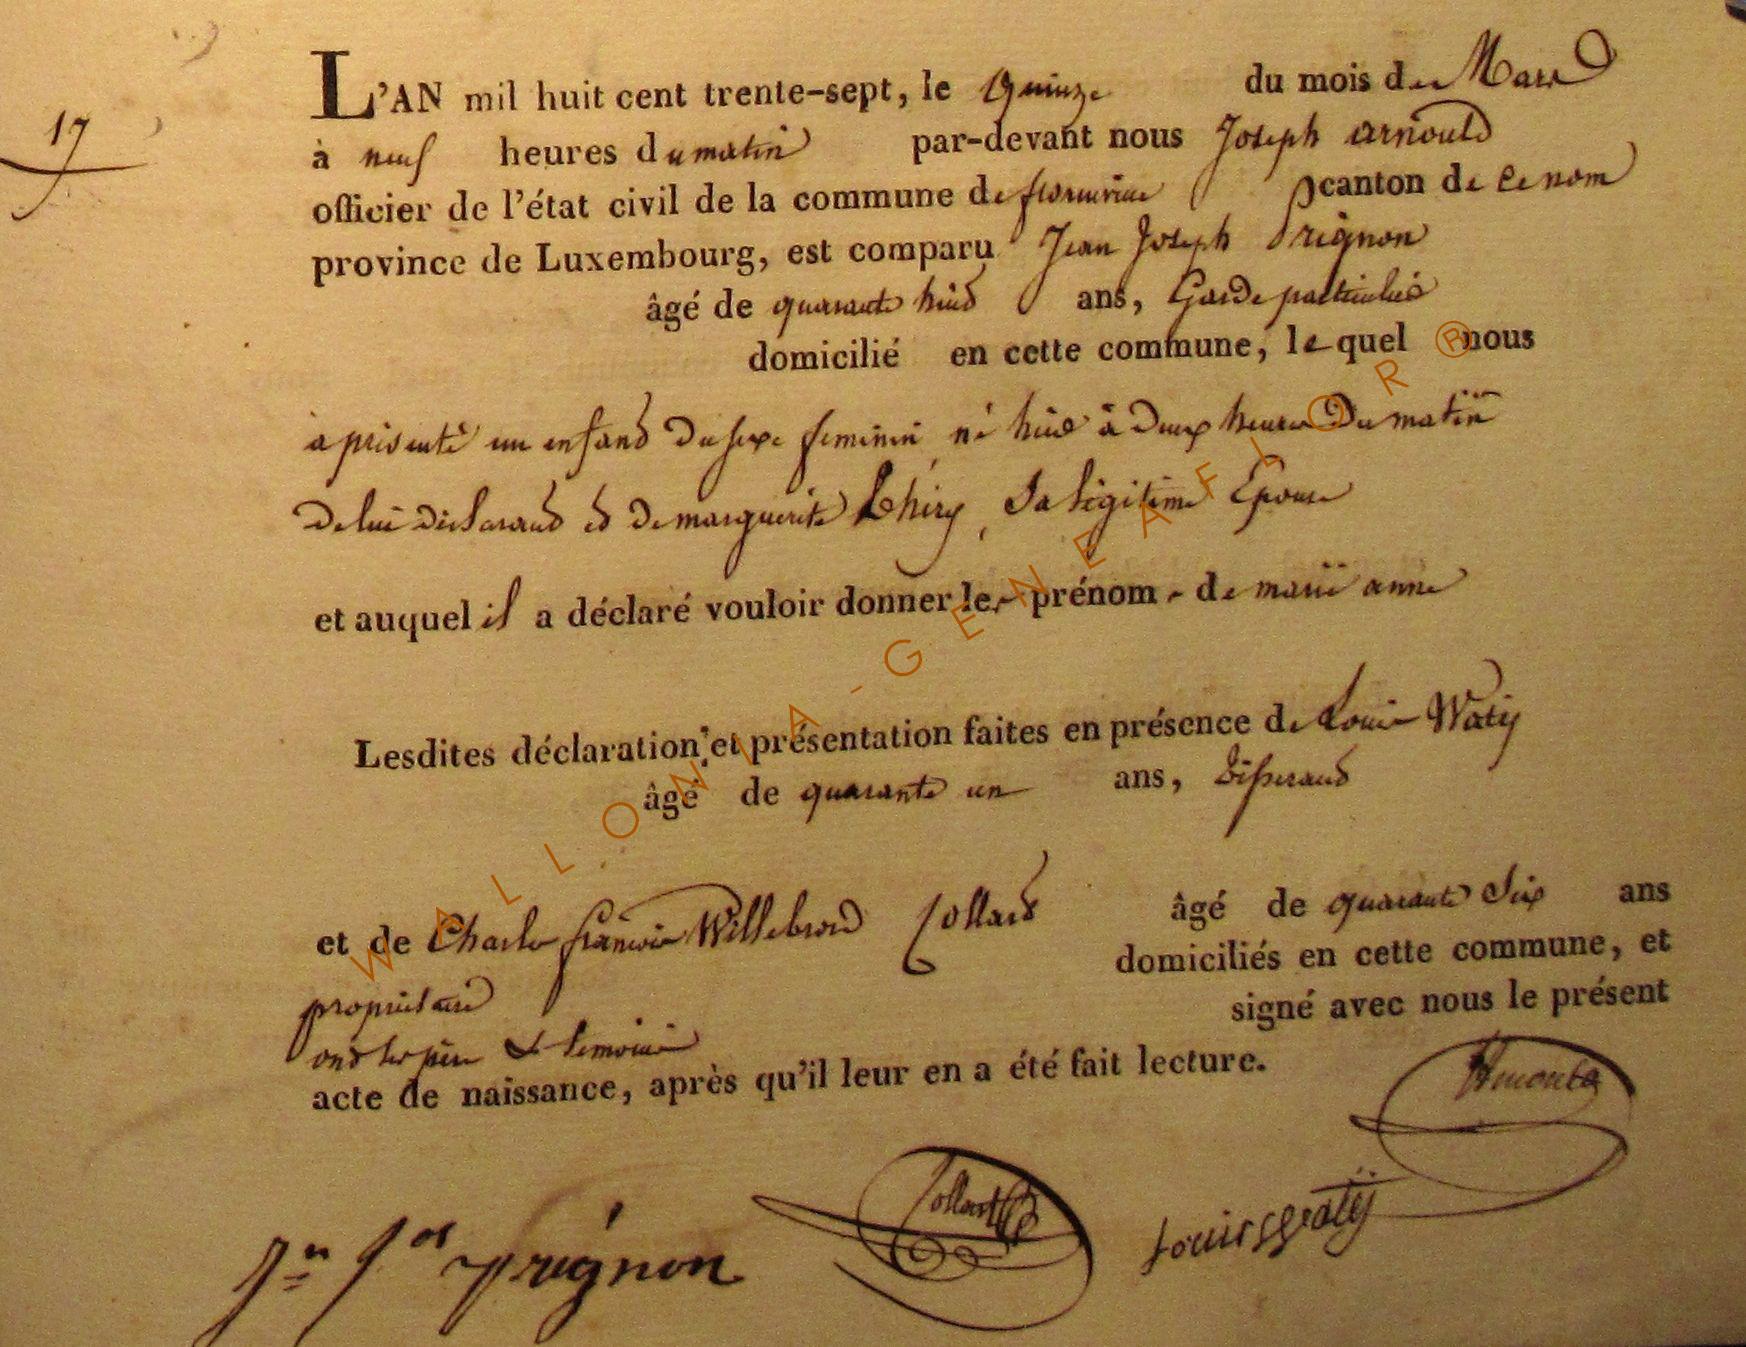 17
L'AN mil huit cent trente-sept, le quinze du mois de Mars
à neuf heures du matin par-devant nous Joseph arnould
officier de l'état civil de la commune de florenville canton de ce nom
province de Luxembourg, est comparu Jean Joseph Prignon
âgé de quarante huit ans, Garde particulier
domicilié en cette commune, le quel nous
a présenté un enfant du sexe feminin né hier à deux heures du matin
de lui déclarant et de marguerite Thiry, Sa légitime Epouse
et auquel il a déclaré vouloir donner les prénom de marie anne
Lesdites déclaration et présentation faites en présence de Louis Waty
âgé de quarante un ans, tisserand
et de Charles françois Willebrord Collard âgé de quarante six ans
propriétaire domiciliés en cette commune, et
ont les père et témoins signé avec nous le présent
acte de naissance, après qu'il leur en a été fait lecture.
Arnould
Collart
Louis Watÿ
Jn Jos prignon
WALLONIA-GENEAFLOR®